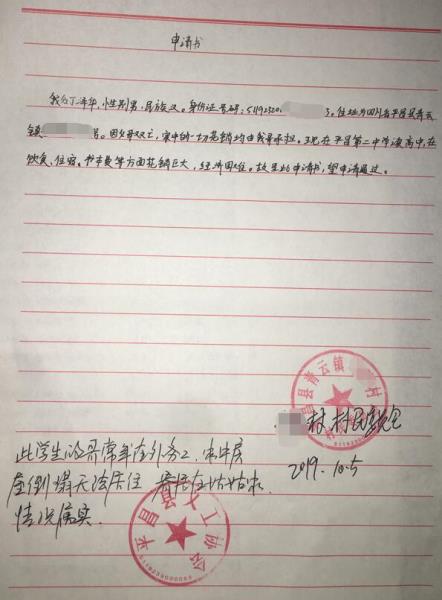 申请书
我叫丁泽华,性别男,民族汉。身份证号码:51192320 号。住址为四川省平昌县青云
镇 号。因父母双亡,家中的一切花销均由我哥承担。现在平昌第二中学读高中,在
饮食、住宿、书本费等方面花销巨大,经济困难。故呈此申请书,望申请通过。
昌县青云镇 村
村村民委员会
2019.10.5
此学生的哥常年在外务工,家中房
屋倒塌无法居住 居在姑姑家
情况属实
平昌 义工协会